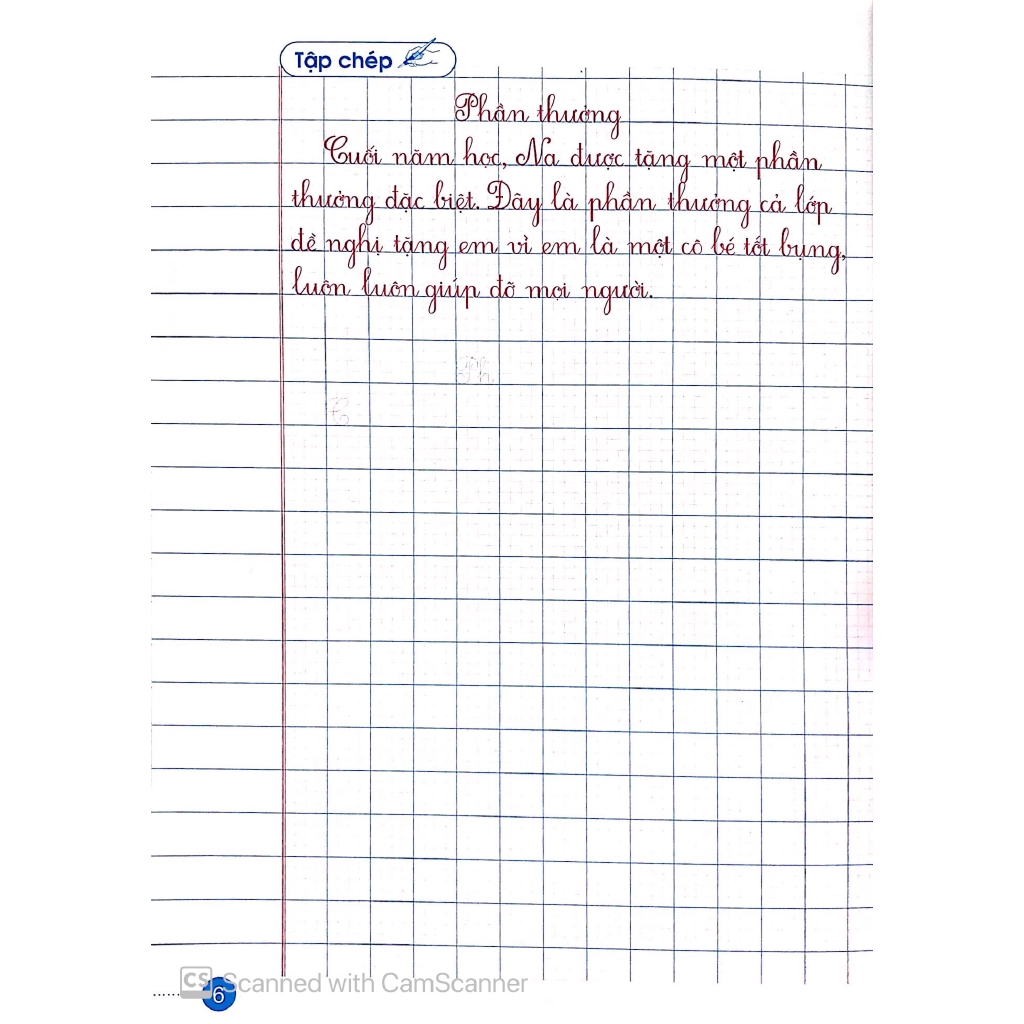 Tập chép
Phần thưởng
Cuối năm học, Na được tặng một phần
thưởng đặc biệt. Đây là phần thưởng cả lớp
đề nghị tặng em vì em là một cô bé tốt bụng,
luôn luôn giúp đỡ mọi người.
Ph
C
CS Scanned with CamScanner
......6